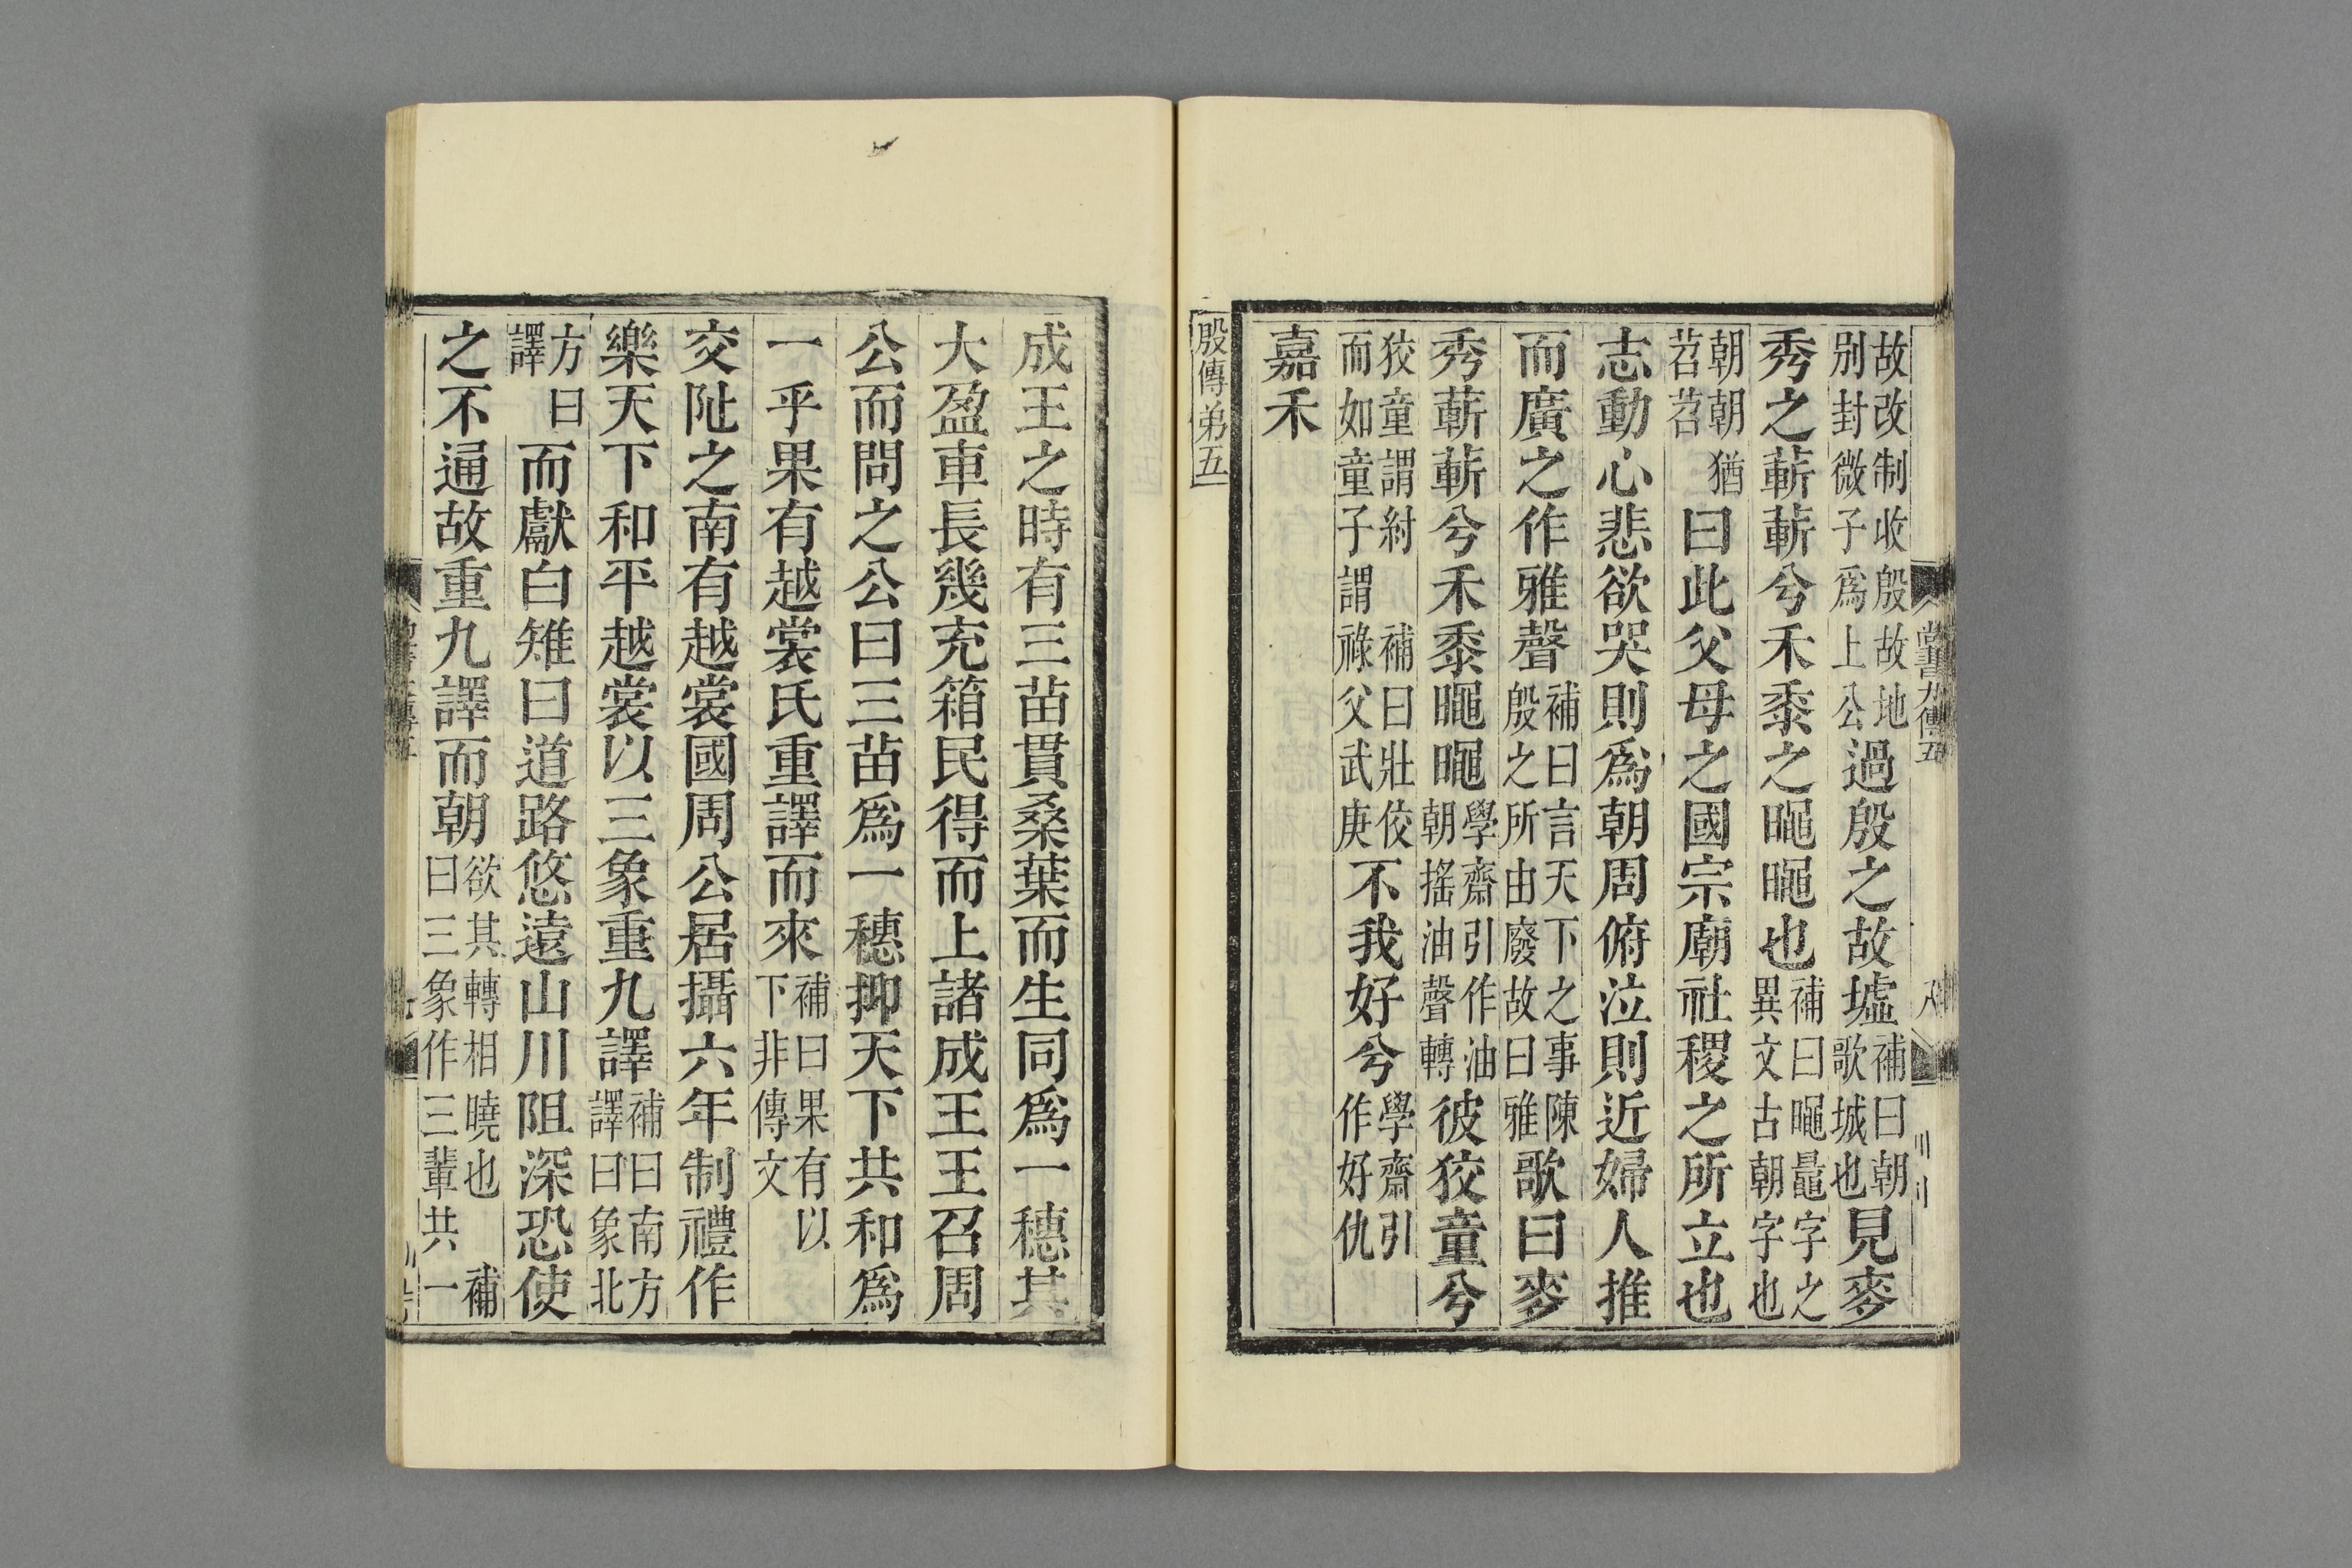 尚書大傳五 八
故改制收殷故地別封微子爲上公過殷之故墟補曰朝歌城也見麥
秀之蔪蔪兮禾黍之也補曰鼂字之異文古朝字也
朝朝猶苕苕曰此父母之國宗廟社稷之所立也
志動心悲欲哭則爲朝周俯泣則近婦人推
而廣之作雅聲補曰言天下之事陳殷之所由廢故曰雅歌曰麥
秀蔪蔪兮禾黍學齋引作油朝搖油聲轉彼狡童兮
狡童謂紂而如童子謂補曰壯佼祿父武庚不我好兮學齋引作好仇
嘉禾
殷傳弟五
成王之時有三苗貫桑葉而生同爲一穗其
大盈車長幾充箱民得而上諸成王王召周
公而問之公曰三苗爲一穗抑天下共和爲
一乎果有越裳氏重譯而來補曰果有以下非傳文
交阯之南有越裳國周公居攝六年制禮作
樂天下和平越裳以三象重九譯補曰南方譯曰象北
方曰譯而獻白雉曰道路悠遠山川阻深恐使
之不通故重九譯而朝欲其轉相曉也 補曰三象作三輩共一